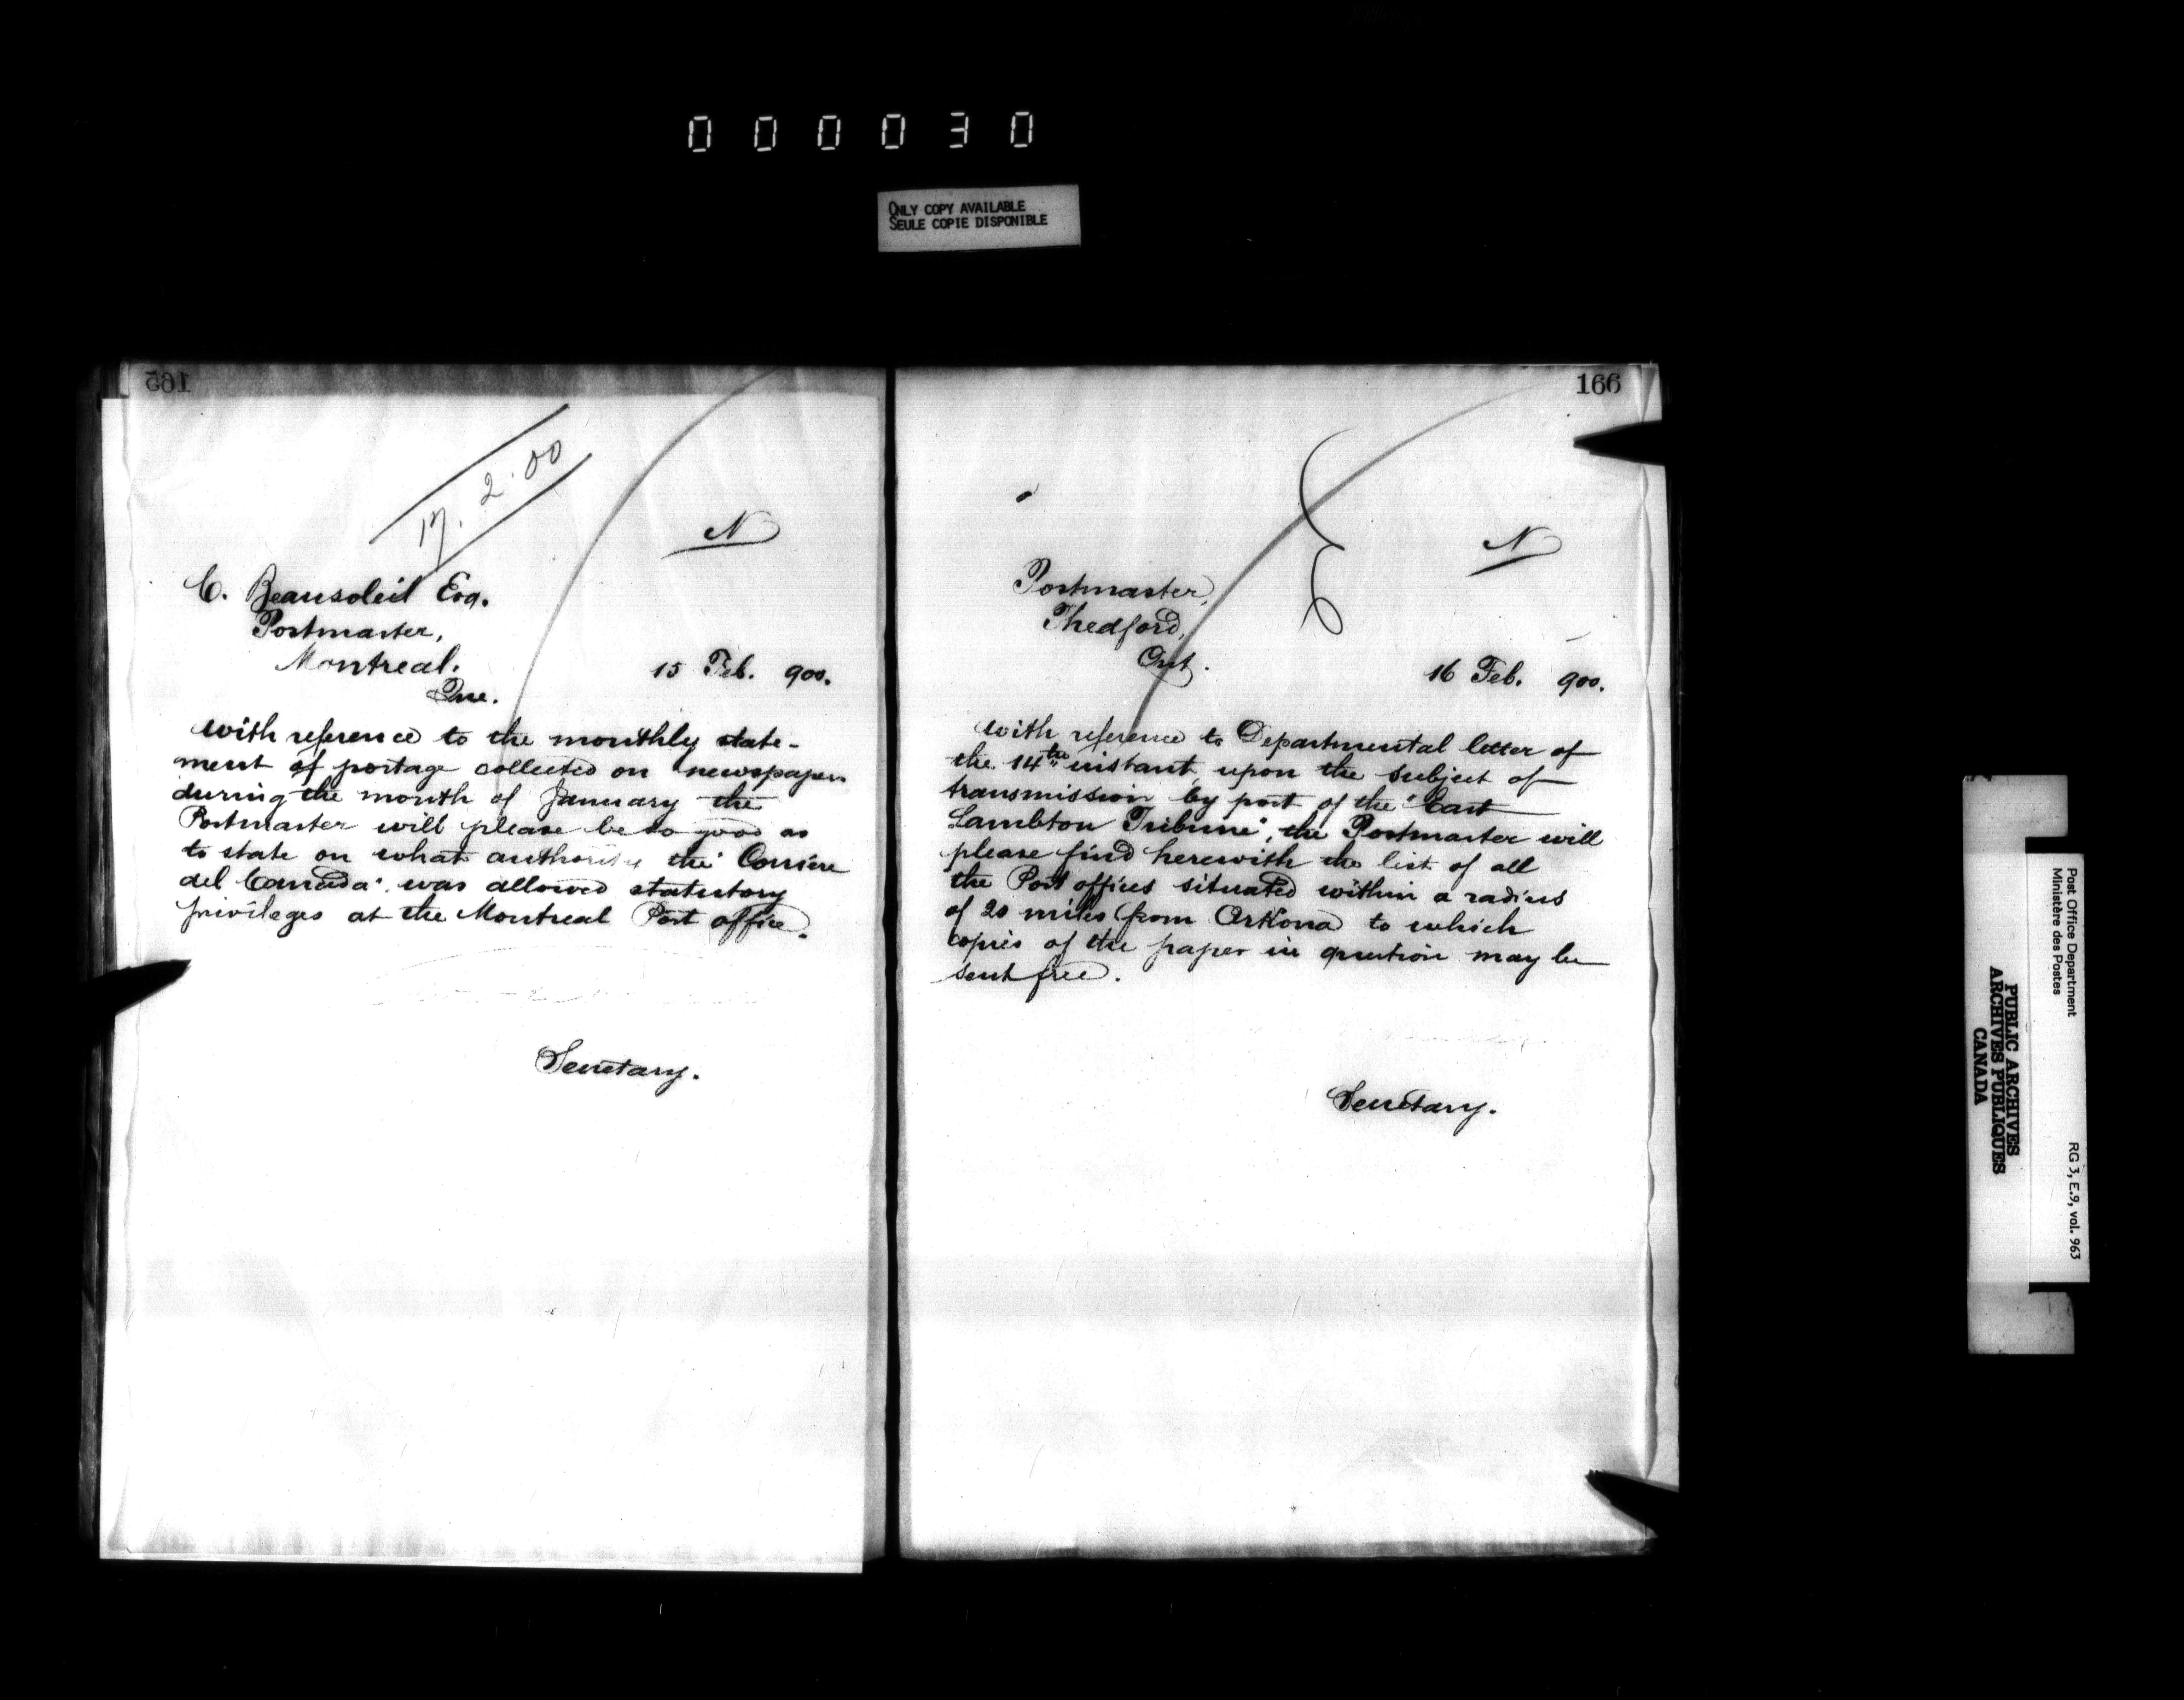 000030
ONLY COPY AVAILABLE
SEULE COPIE DISPONIBLE
165
17.2.00
N
C. Beausoleil Esq.
Postmaster,
Montreal.
Que.
15 Feb. 900.
With reference to the monthly state-
ment of postage collected on newspapers
during the month of January the
Postmaster will please be so good as
to state on what authority the "Corriere
del Canada" was allowed statutory
privileges at the Montreal Post office.
Secretary.
166
N
Postmaster,
Thedford,
Ont.
16 Feb. 900.
With reference to Departmental letter of
the 14th instant, upon the subject of
transmission by post of the "East
Lambton Tribune", the Postmaster will
please find herewith the list of all
the Post offices situated within a radius
of 20 miles from Arkona to which
copies of the paper in question may be
sent free.
Secretary.
Post Office Department
Ministère des Postes
RG 3, E.9, vol. 963
PUBLIC ARCHIVES
ARCHIVES PUBLIQUES
CANADA